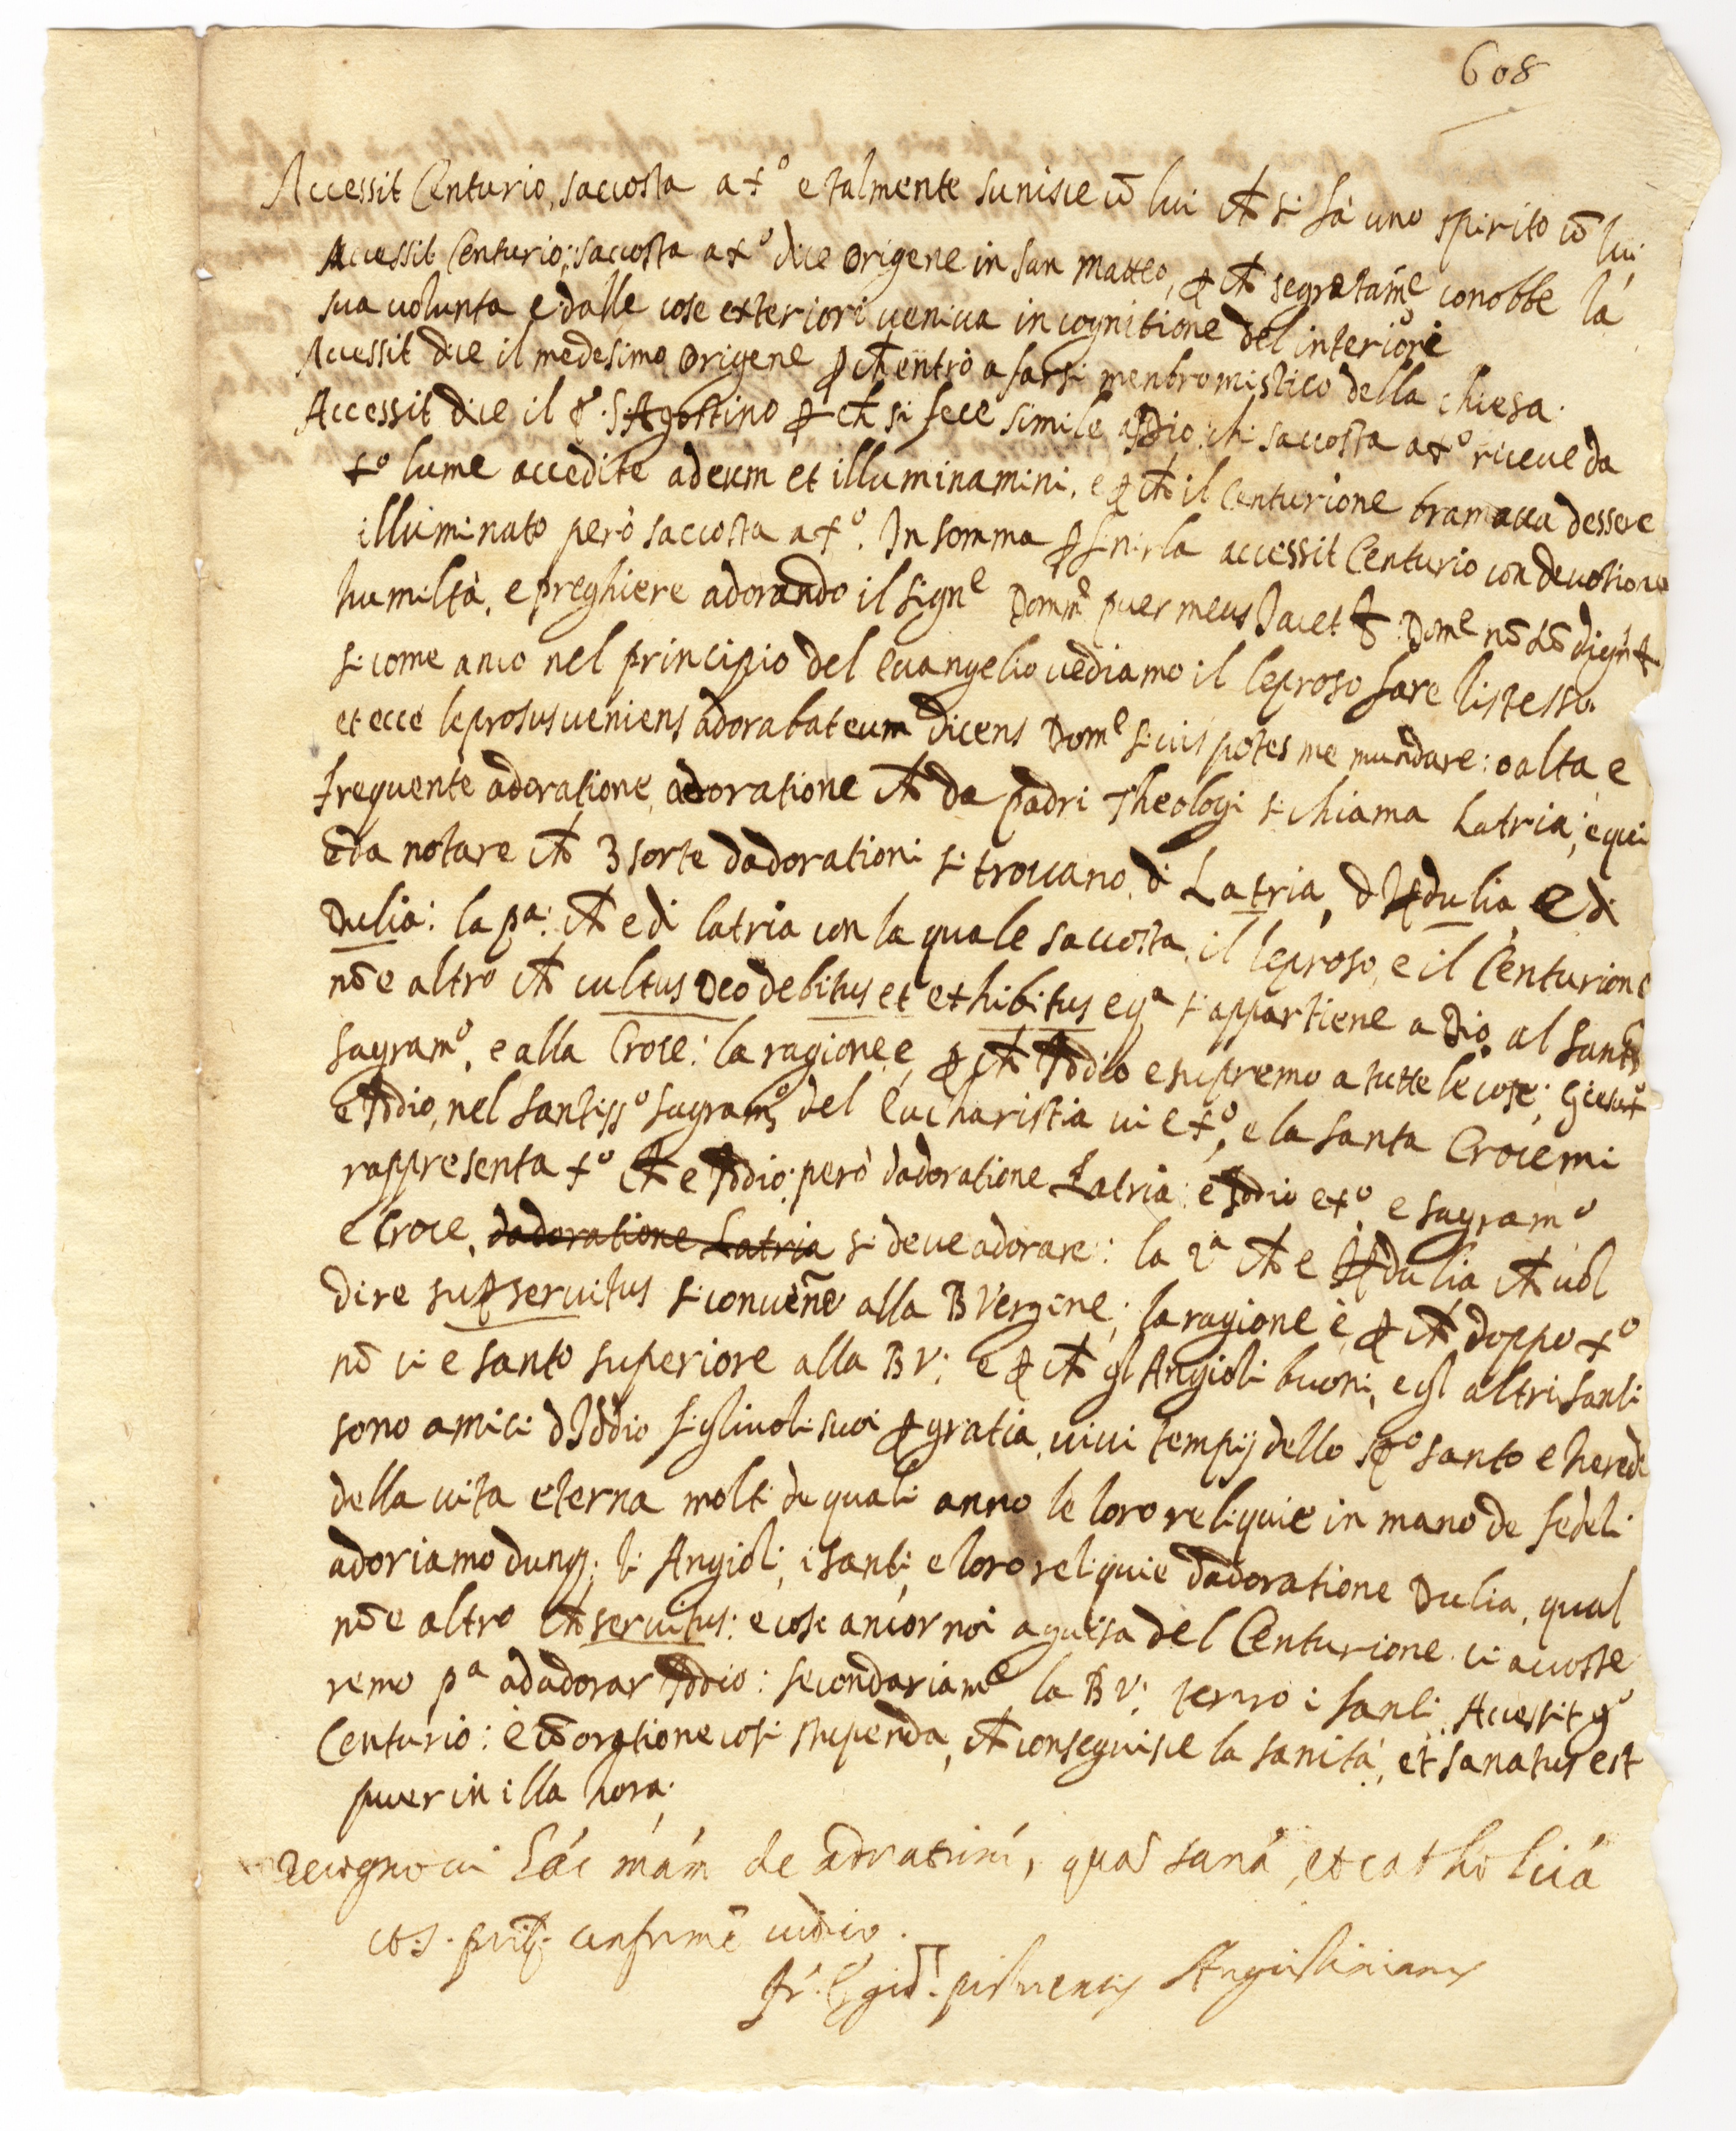 608
Accessit Centurio, saccosta a xº e talmente sunisce cō lui ch si fà uno spirito cō lui
Accessit Centurio; saccosta a xº dice Origene in san Matteo, p ch segretamᵉ conobbe la
sua volunta e dalle cose exteriori veniva in cognitione del interiore
Accessit dice il medesimo Origene p ch entrò a farsi menbro mistico della chiesa.
Accessit dice il P. S. Agostino p ch si fece simile a Dio: chi saccosta a xº riceve da
xº lume accedite ad eum et illuminamini, e p ch il Centurione bramava dessere
illuminato però saccosta a xº. In somma p finirla accessit Centurio con devotione
humiltà, e preghiere adorando il signᵉ Domnᵉ puer meus Jacet &. Domᵉ nō sō dign
si come anco nel principio del evangelio vediamo il leproso fare listesso.
et ecce leprosus veniens adorabat eum dicens Domᵉ si vis potes me mundare: o alta e
frequente adoratione, adoratione ch da padri Theologi si chiama Latria; e qui
e da notare ch 3 sorte dadorationi si trovano, di Latria, d Hpdulia, e di
Dulia: la pᵃ: ch e di latria con la quale saccosta il leproso, e il Centurione
nō e altro ch cultus Deo debitus et exhibitus e qᵃ si appartiene a Dio, al santo
sagramº, e alla Croce: la ragione e, p ch Iddio e supremo a tutte le cose; Giesu xº
e Iddio, nel santissº sagramº del Eucharistia vi e xº, e la santa Croce mi
rappresenta xº ch e Iddio: però dadoratione Latria: e Iddio e xº e sagramº
e Croce, dadoratione Latria si deve adorare: la 2ᵃ ch e Hpdulia ch vol
dire supservitus si convēne alla B Vergine; la ragione è, p ch doppo xº
nō vi e santo superiore alla B V: e p ch gl Angioli buoni, e gl altri santi
sono amici d Iddio figlivoli suoi p gratia, vivi tempij dello Spº santo e heredi
della vita eterna molti de quali anno le loro reliquie in mano de fedeli
adoriamo dunq; li Angioli, i santi, e loro reliquie dadoratione Dulia, qual
nō e altro ch servitus: e cosi ancor noi a guisa del Centurione ci accoste
remo pᵃ ad adorar Iddio: secondariamᵉ la B V: terzo i santi. Accessit gº
Centurio: e cō oratione cosi stupenda, ch conseguisce la sanità, et sanatus est
puer in illa hora.
recognovi hác mám de adorationi, quā saná, et catholicá
confirmē iudico.
Fr. Egid. Augustinianus